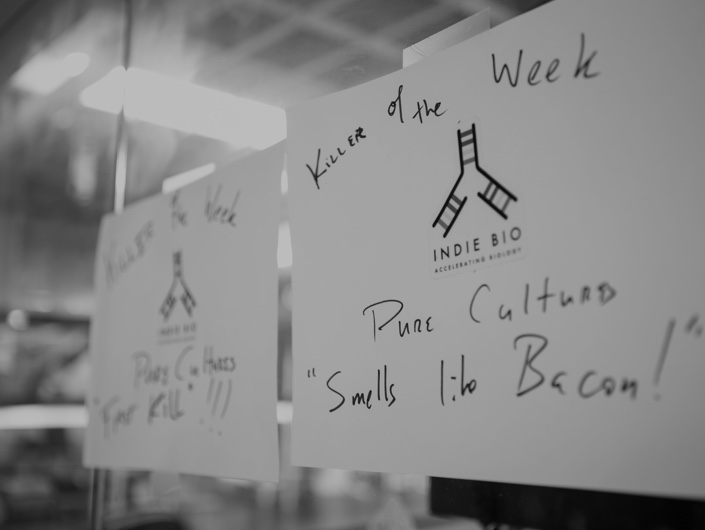 Killer of the Week
INDIE BIO
ACCELERATING BIOLOGY
Pure Cultures
"Smells like Bacon!"
Killer of the Week
INDIE BIO
Pure Cultures
"First Kill"!!!